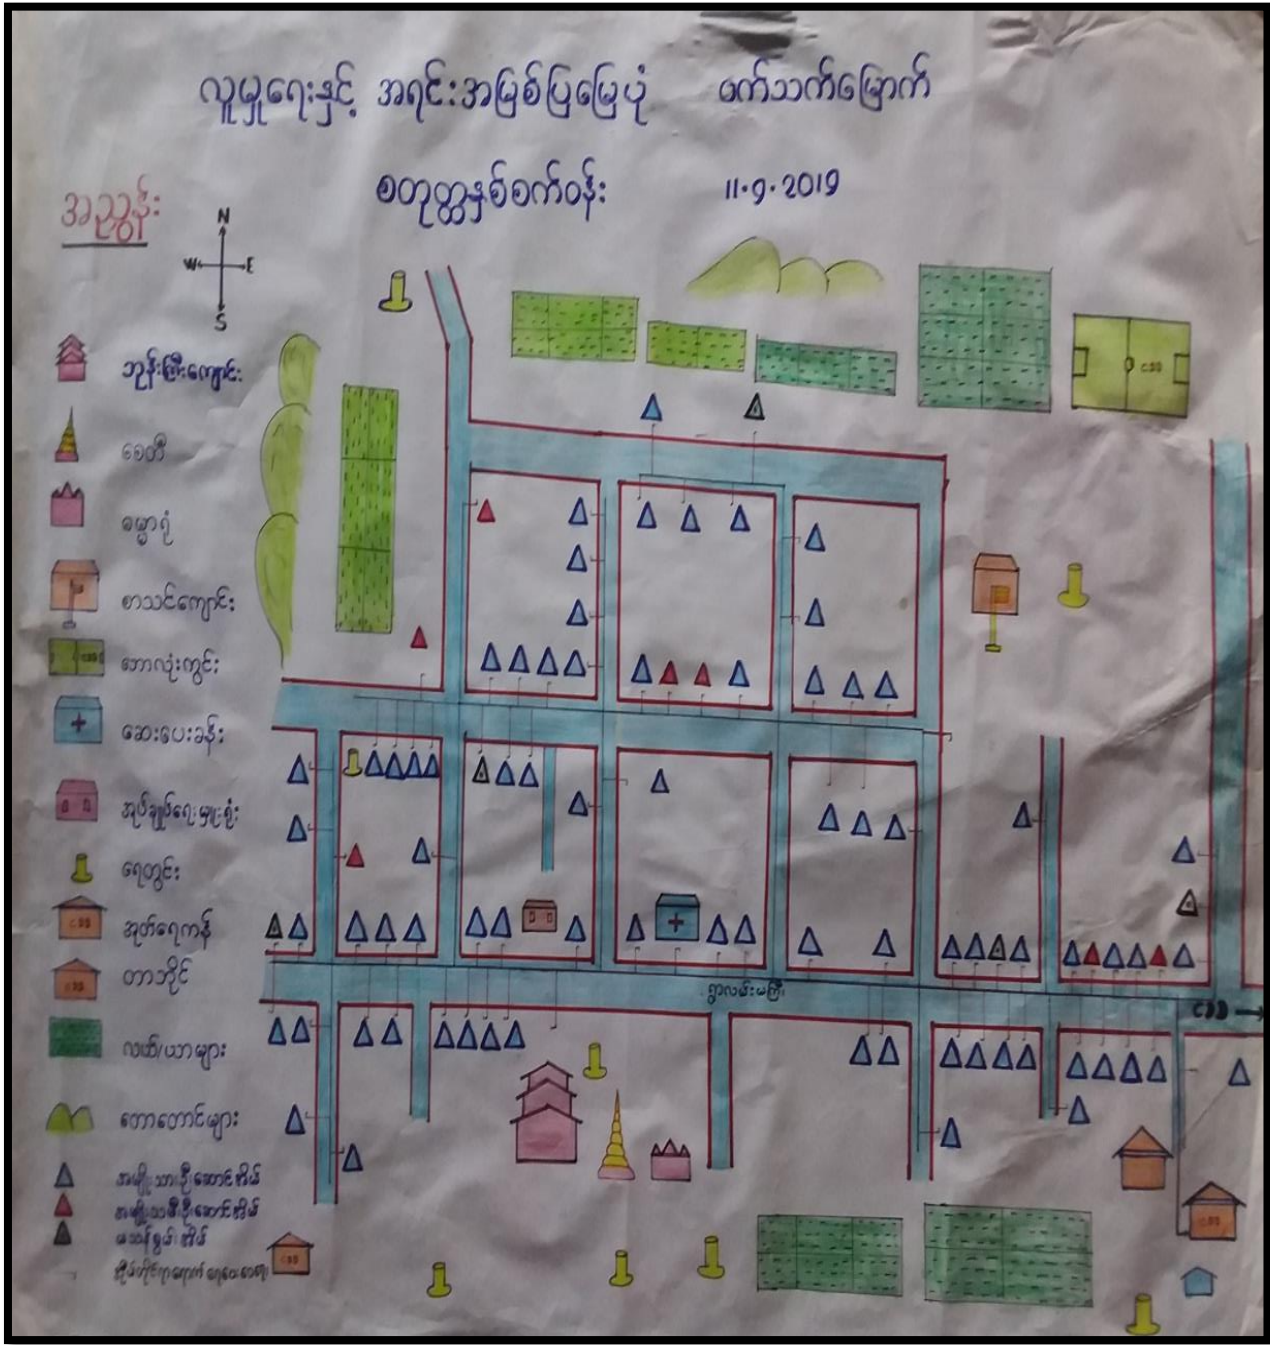 လူမှုရေးနှင့် အရင်းအမြစ်ပြမြေပုံ ဖက်သက်မြောက်
စတုတ္ထနှစ်စက်ဝန်း 11.9.2019
အညွှန်း
N
W E
S
ဘုန်းကြီးကျောင်း
စေတီ
ဓမ္မာရုံ
စာသင်ကျောင်း
ဘောလုံးကွင်း
ဆေးပေးခန်း
အုပ်ချုပ်ရေးမှူးရုံး
ရေတွင်း
အုတ်ရေကန်
တာဘိုင်
လယ်/ယာများ
တောတောင်များ
အမျိုးသားဦးဆောင်အိမ်
အမျိုးသမီးဦးဆောင်အိမ်
မသန်စွမ်းအိမ်
CDD
ရွာလမ်းမကြီး
CDD
CDD
CDD